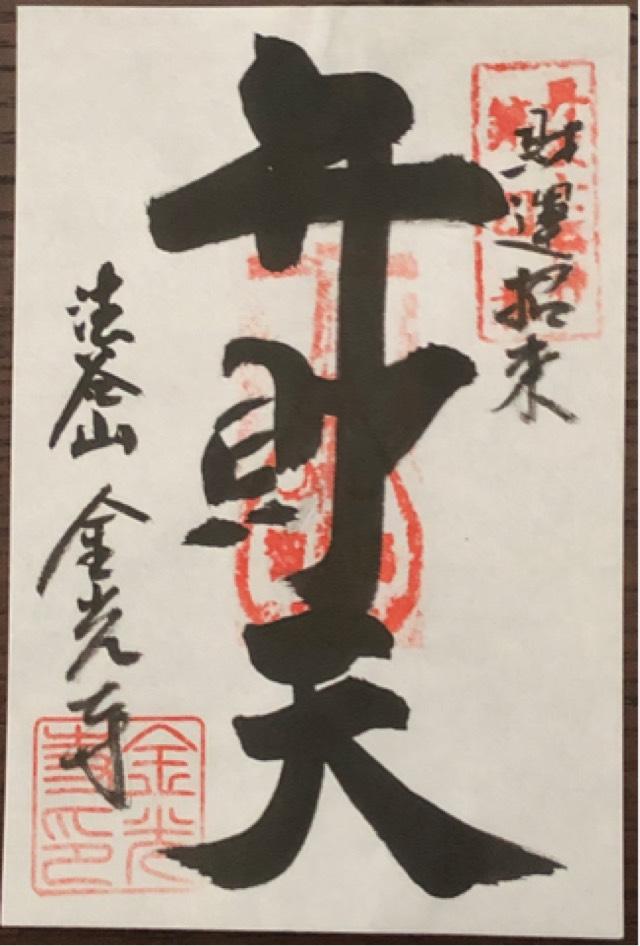 財運招来
弁財天
法蓥山 金光寺
金光
寺印